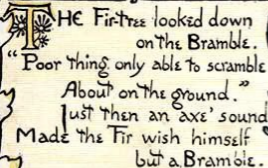 THE Fir-tree looked down
on the Bramble.
"Poor thing, only able to scramble
About on the ground."
Just then an axe' sound
Made the Fir wish himself
but a Bramble.